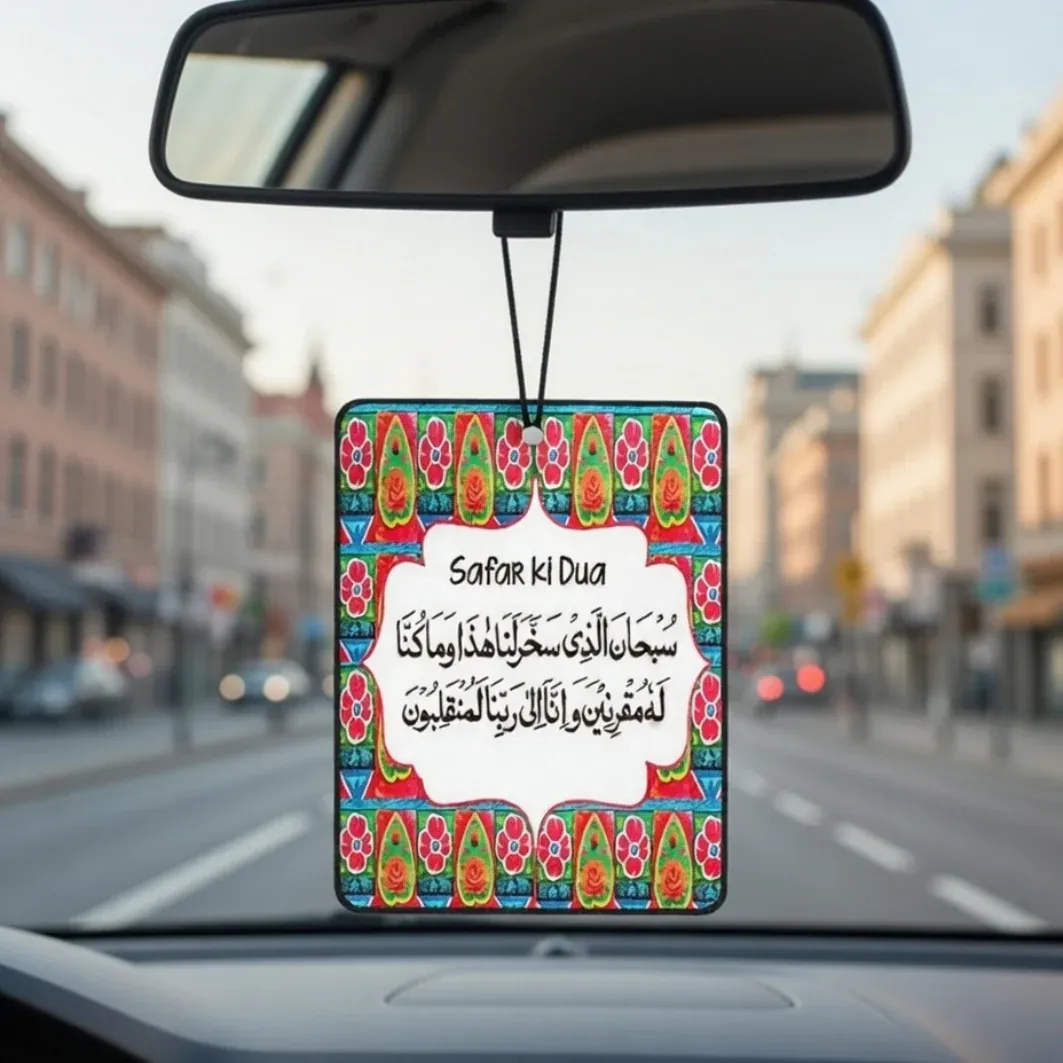 Safar ki Dua
سُبْحَانَ الَّذِیْ سَخَّرَ لَنَا هٰذَا وَمَا كُنَّا
لَهٗ مُقْرِنِيْنَ وَ اِنَّآ اِلٰى رَبِّنَا لَمُنْقَلِبُوْنَ